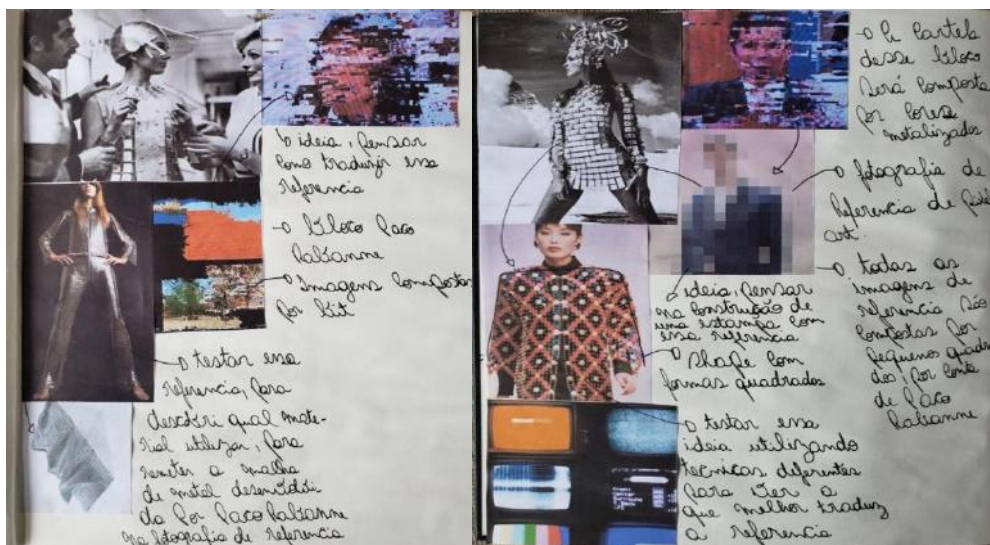 ideia, pensar
como traduzir essa
referencia
bloco Paco
Rabanne
Imagens compostas
por bit
testar essa
referencia, para
descobri qual mate-
rial utilizar, para
remeter a malha
de metal desenvolvi
da por Paco Rabanne
na fotografia de referencia
A cartela
desse bloco
será composta
por cores
metalizadas
fotografia de
referencia de pixel
art.
todas as
imagens de
referencia são
compostas por
pequenos quadra
dos, por conta
de Paco
Rabanne
ideia, pensar
na construção de
uma estampa com
essa referencia
Shape com
formas quadradas
testar essa
ideia utilizando
tecnicas diferentes
para ver a
que melhor traduz
a referencia